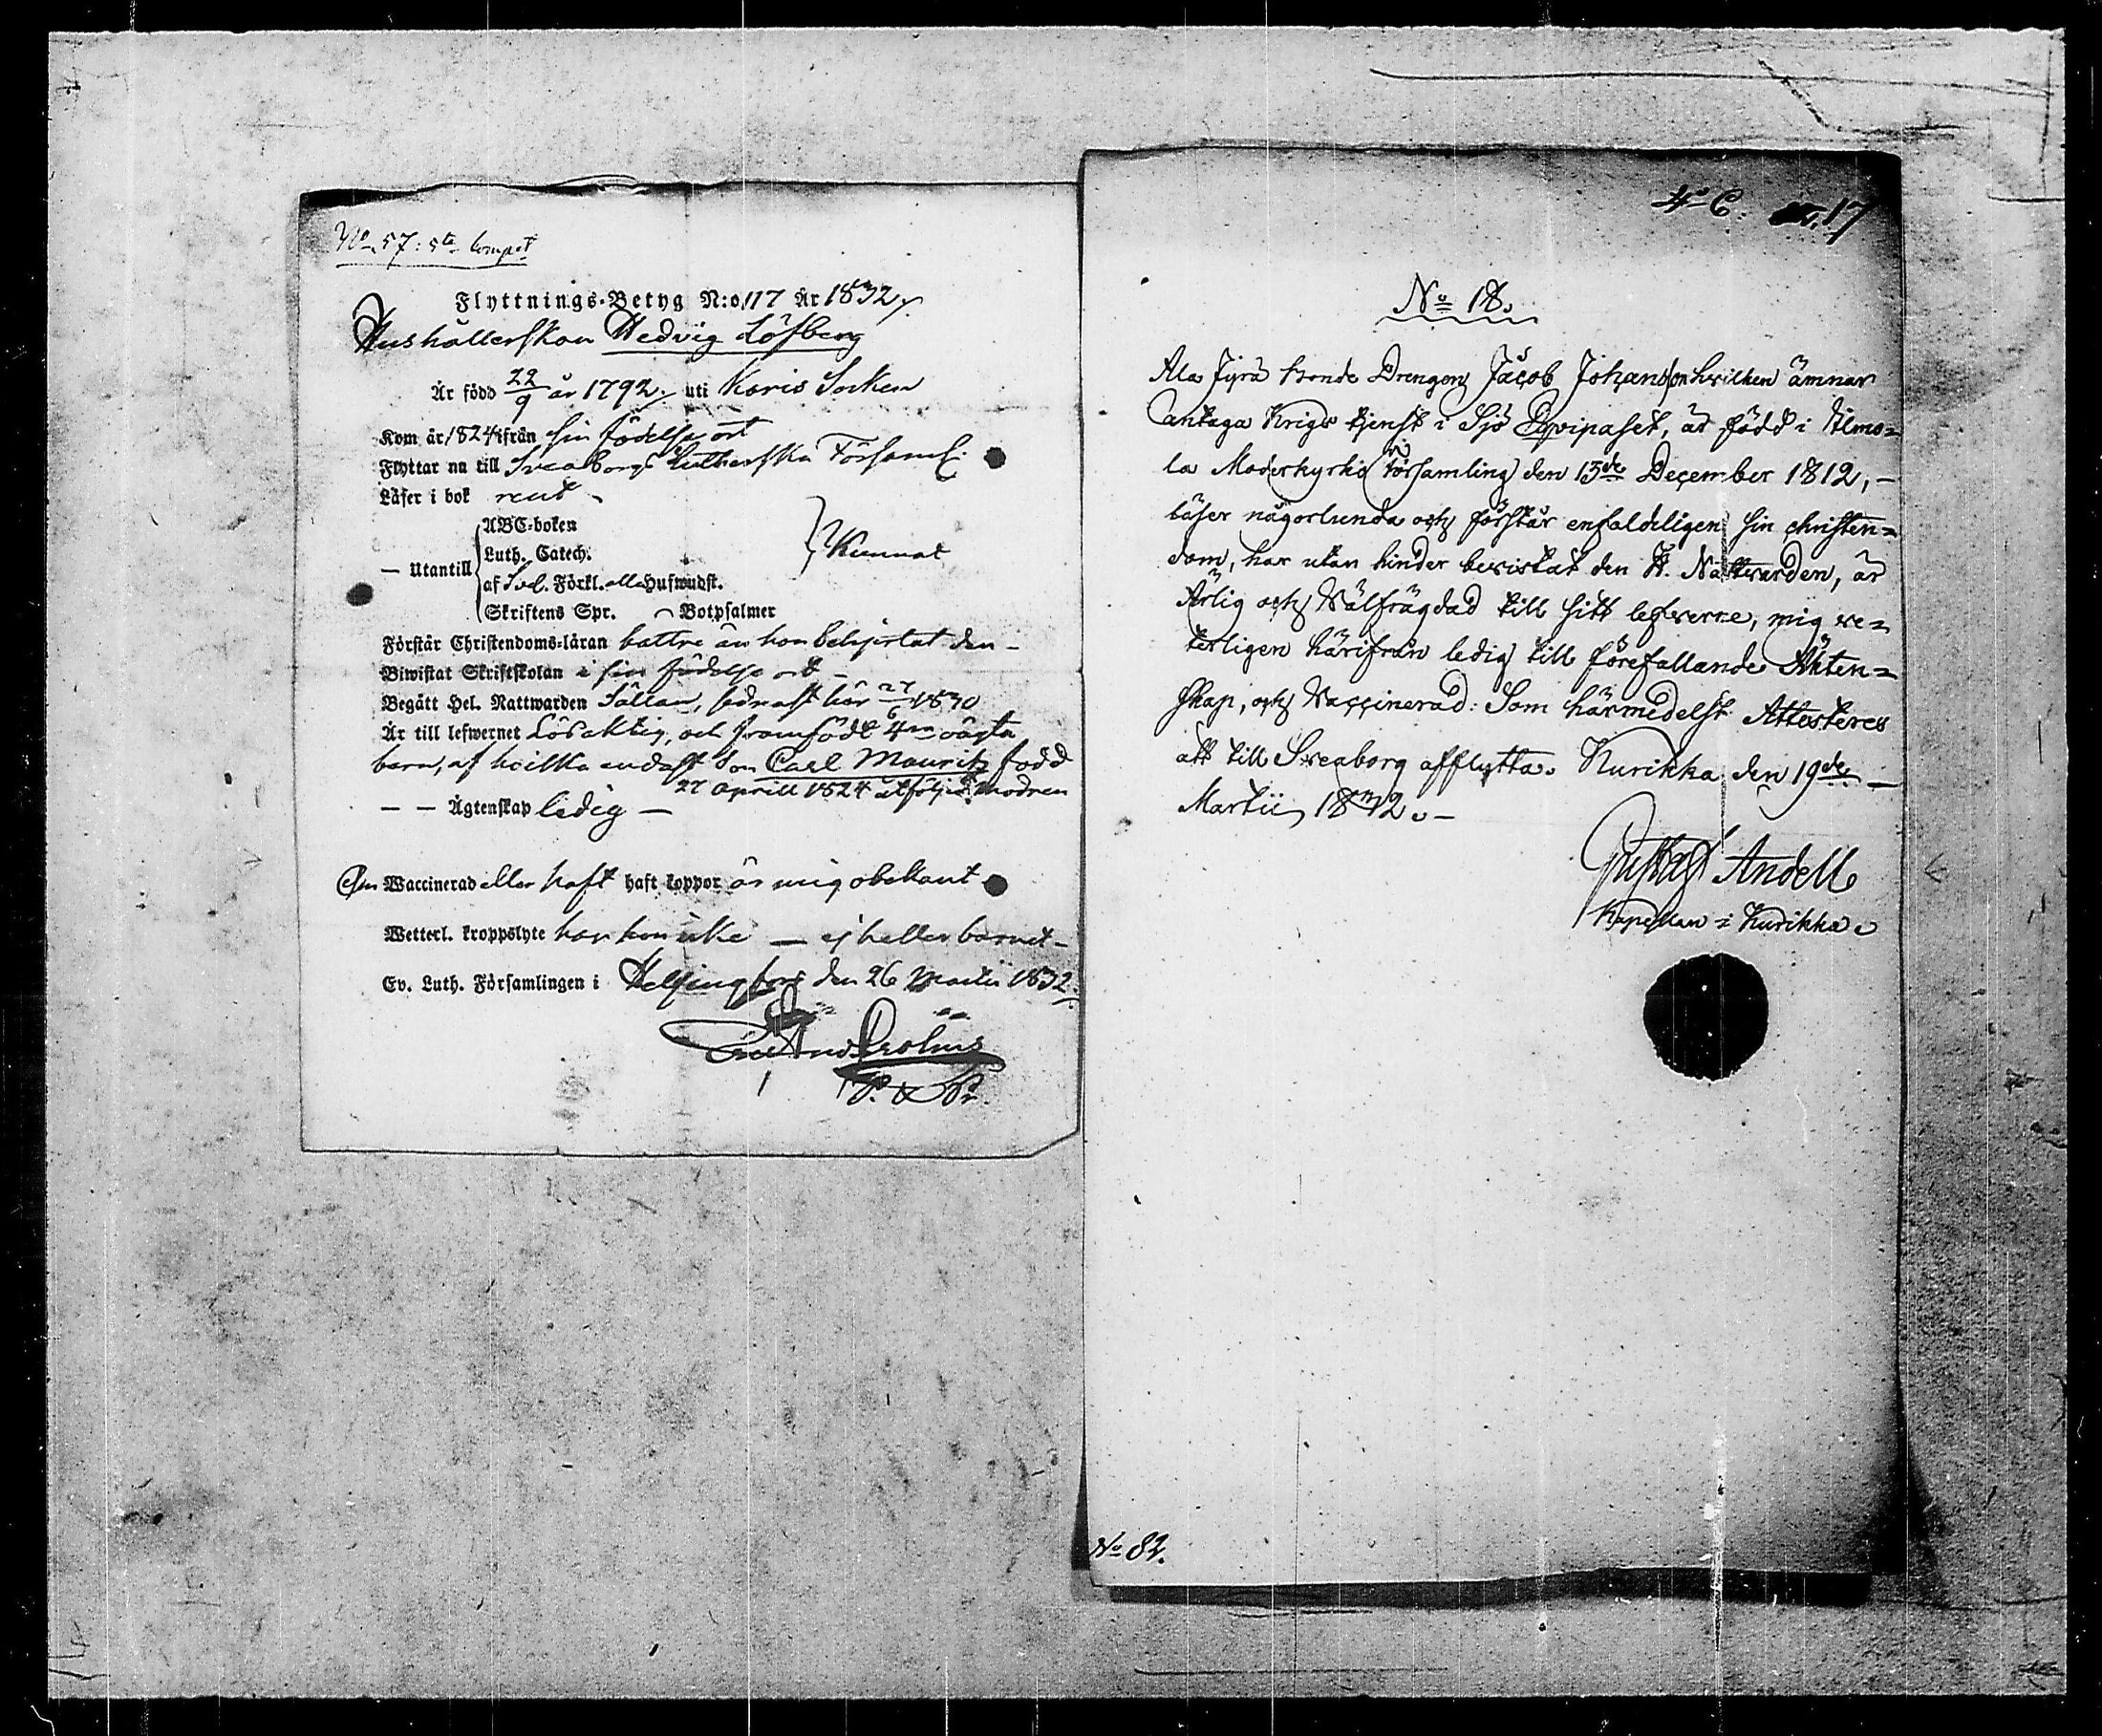 No 57: 5te Comp:t
Flyttnings-Betyg N:o 117 År 1832.
Hushållerskan Hedvig Löfberg
Är född 22/9 år 1792, uti Karis Socken
Kom år 1824 ifrån sin födelse ort
Flyttar nu till Sveaborgs Lutherska Församl:
Läser i bok rent
— Utantill
ABC-boken
Luth. Catech.
af Sveb. Förkl. alla Hufwudst.
Skriftens Spr. — Botpsalmer
Kunnat
Förstår Christendoms-läran battre än hon behjertat den —
Biwistat Skriftskolan i sin födelse ort —
Begått Hel. Nattwarden Sällan, sednast här 27/6 1830
Är till lefwernet Lösaktig, och framfödt 4ra oägta
barn, af hvilka endast Son Carl Mauritz född
27 Aprill 1824 åtföljer modren
— — Ägtenskap ledig —
Om Waccinerad eller haft haft koppor är mig obekant
Wetterl. kroppslyte har hon icke — ej heller barnet —
Ev. Luth. Församlingen i Helsingfors den 26 Martii 1832.
P. & Pr.
4de C: 17
No 18.
Ala Jyrä bonde Drengen Jacob Johansson hvilken ämnar
antaga Krigs tjenst i Sjö Eqvipaget, är född i Ilmo=
la Moderkyrko församling den 13de December 1812, —
läser någorlunda och förstår enfaldeligen sin christen=
dom, har utan hinder bevistat den H. Nattvarden, är
Ärlig och Välfrägdad till sitt lefverne, mig ve=
terligen härifrån ledig till förefallande Äkten=
skap, och Vaccinerad: Som härmedelst Attesteras
att till Sveaborg afflytta. Kurikka den 19de —
Martii 1832. —
Gustaf Andell
Kapellan i Kurikka
No 82.